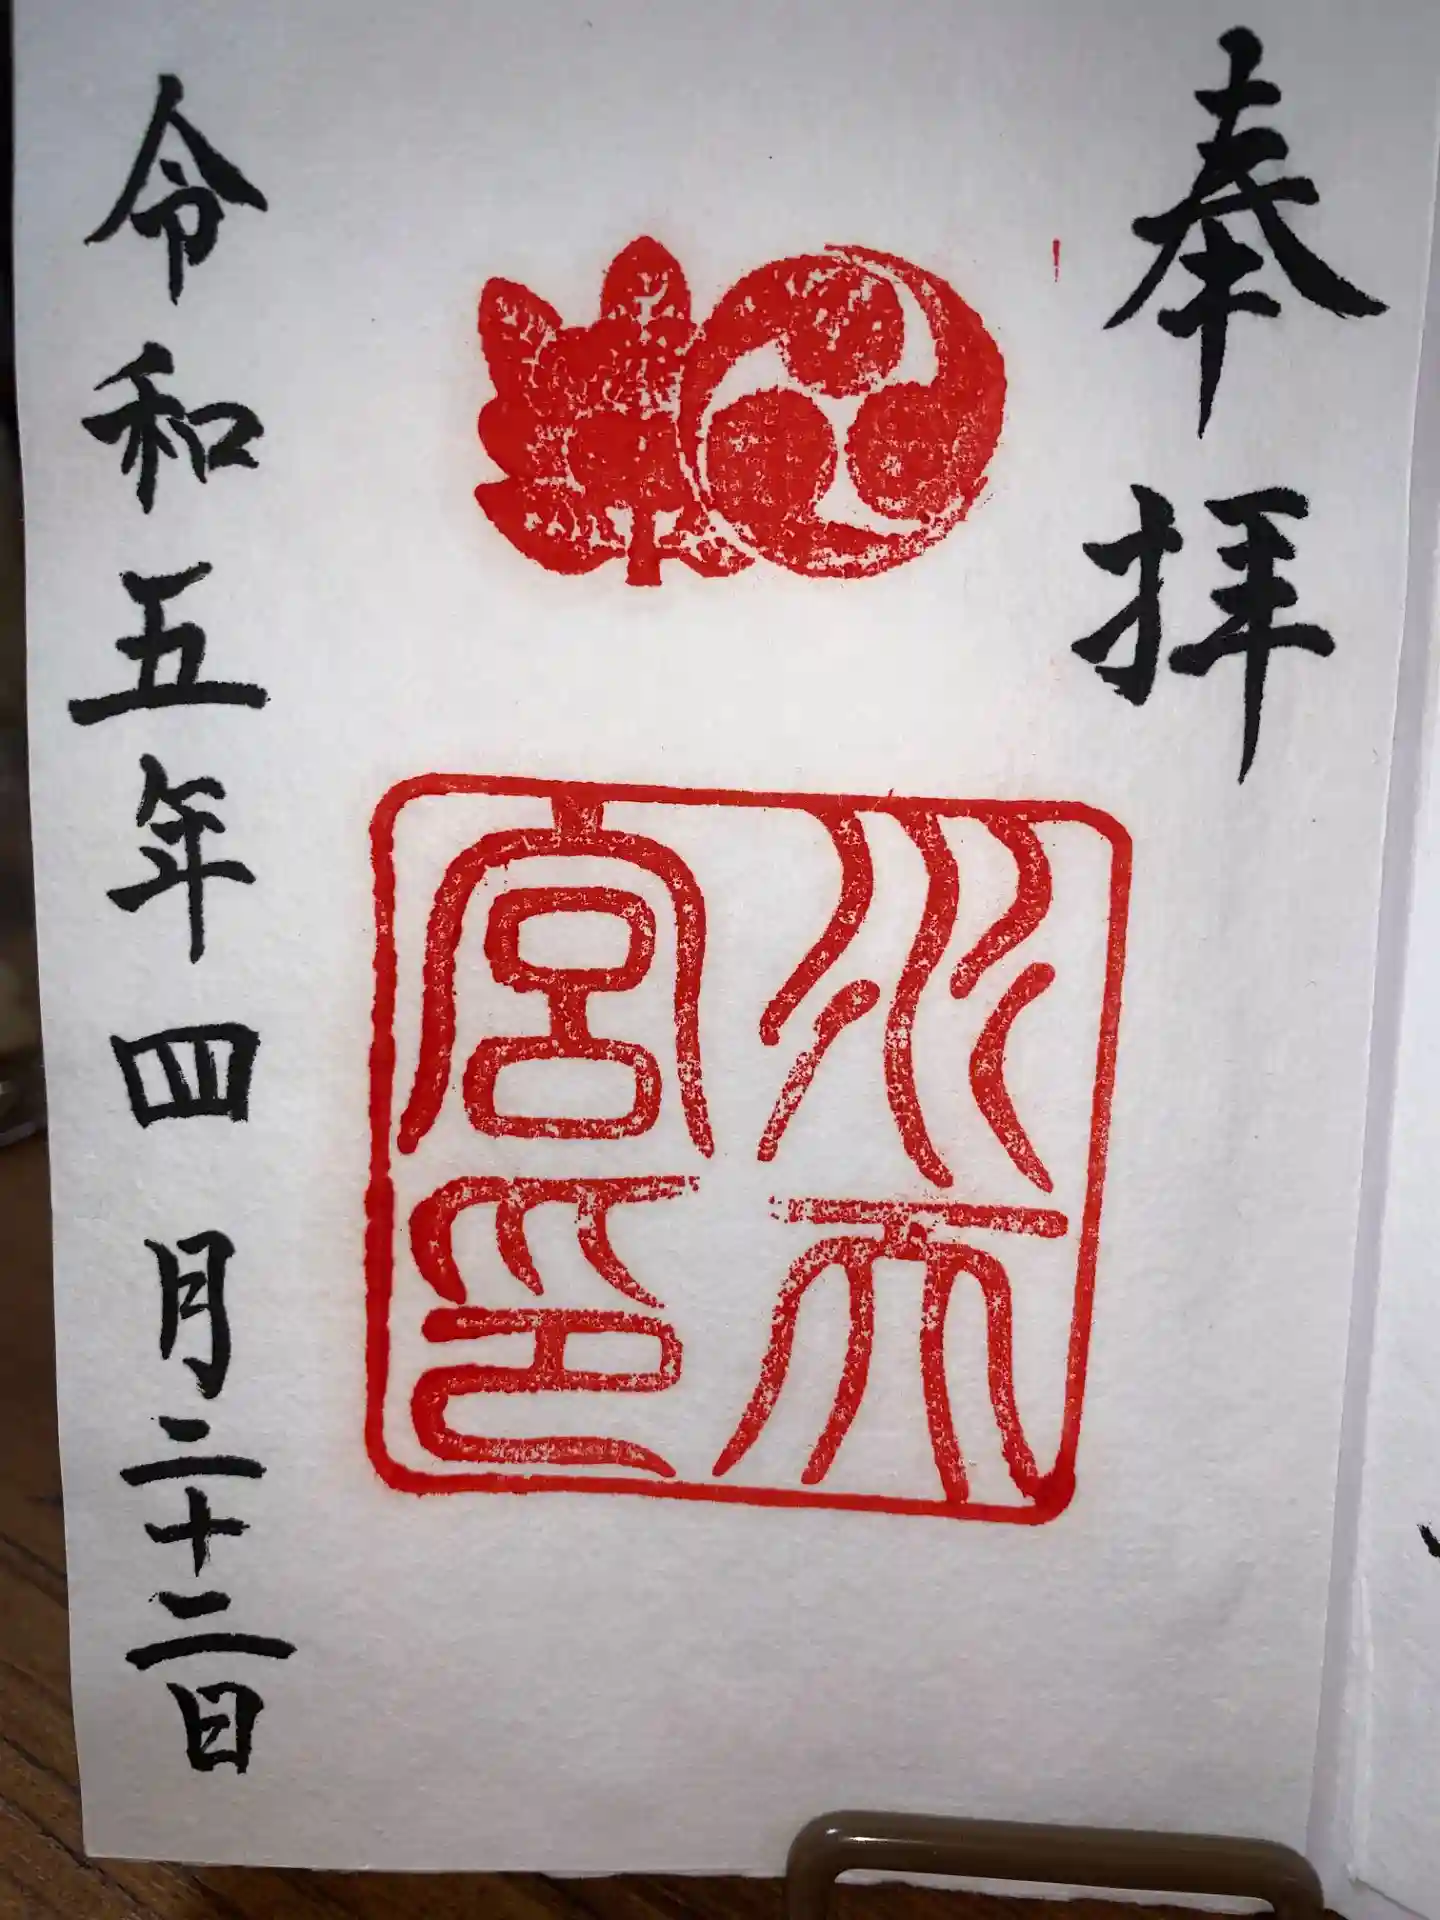 奉拝
水天
宮印
令和五年四月二十二日